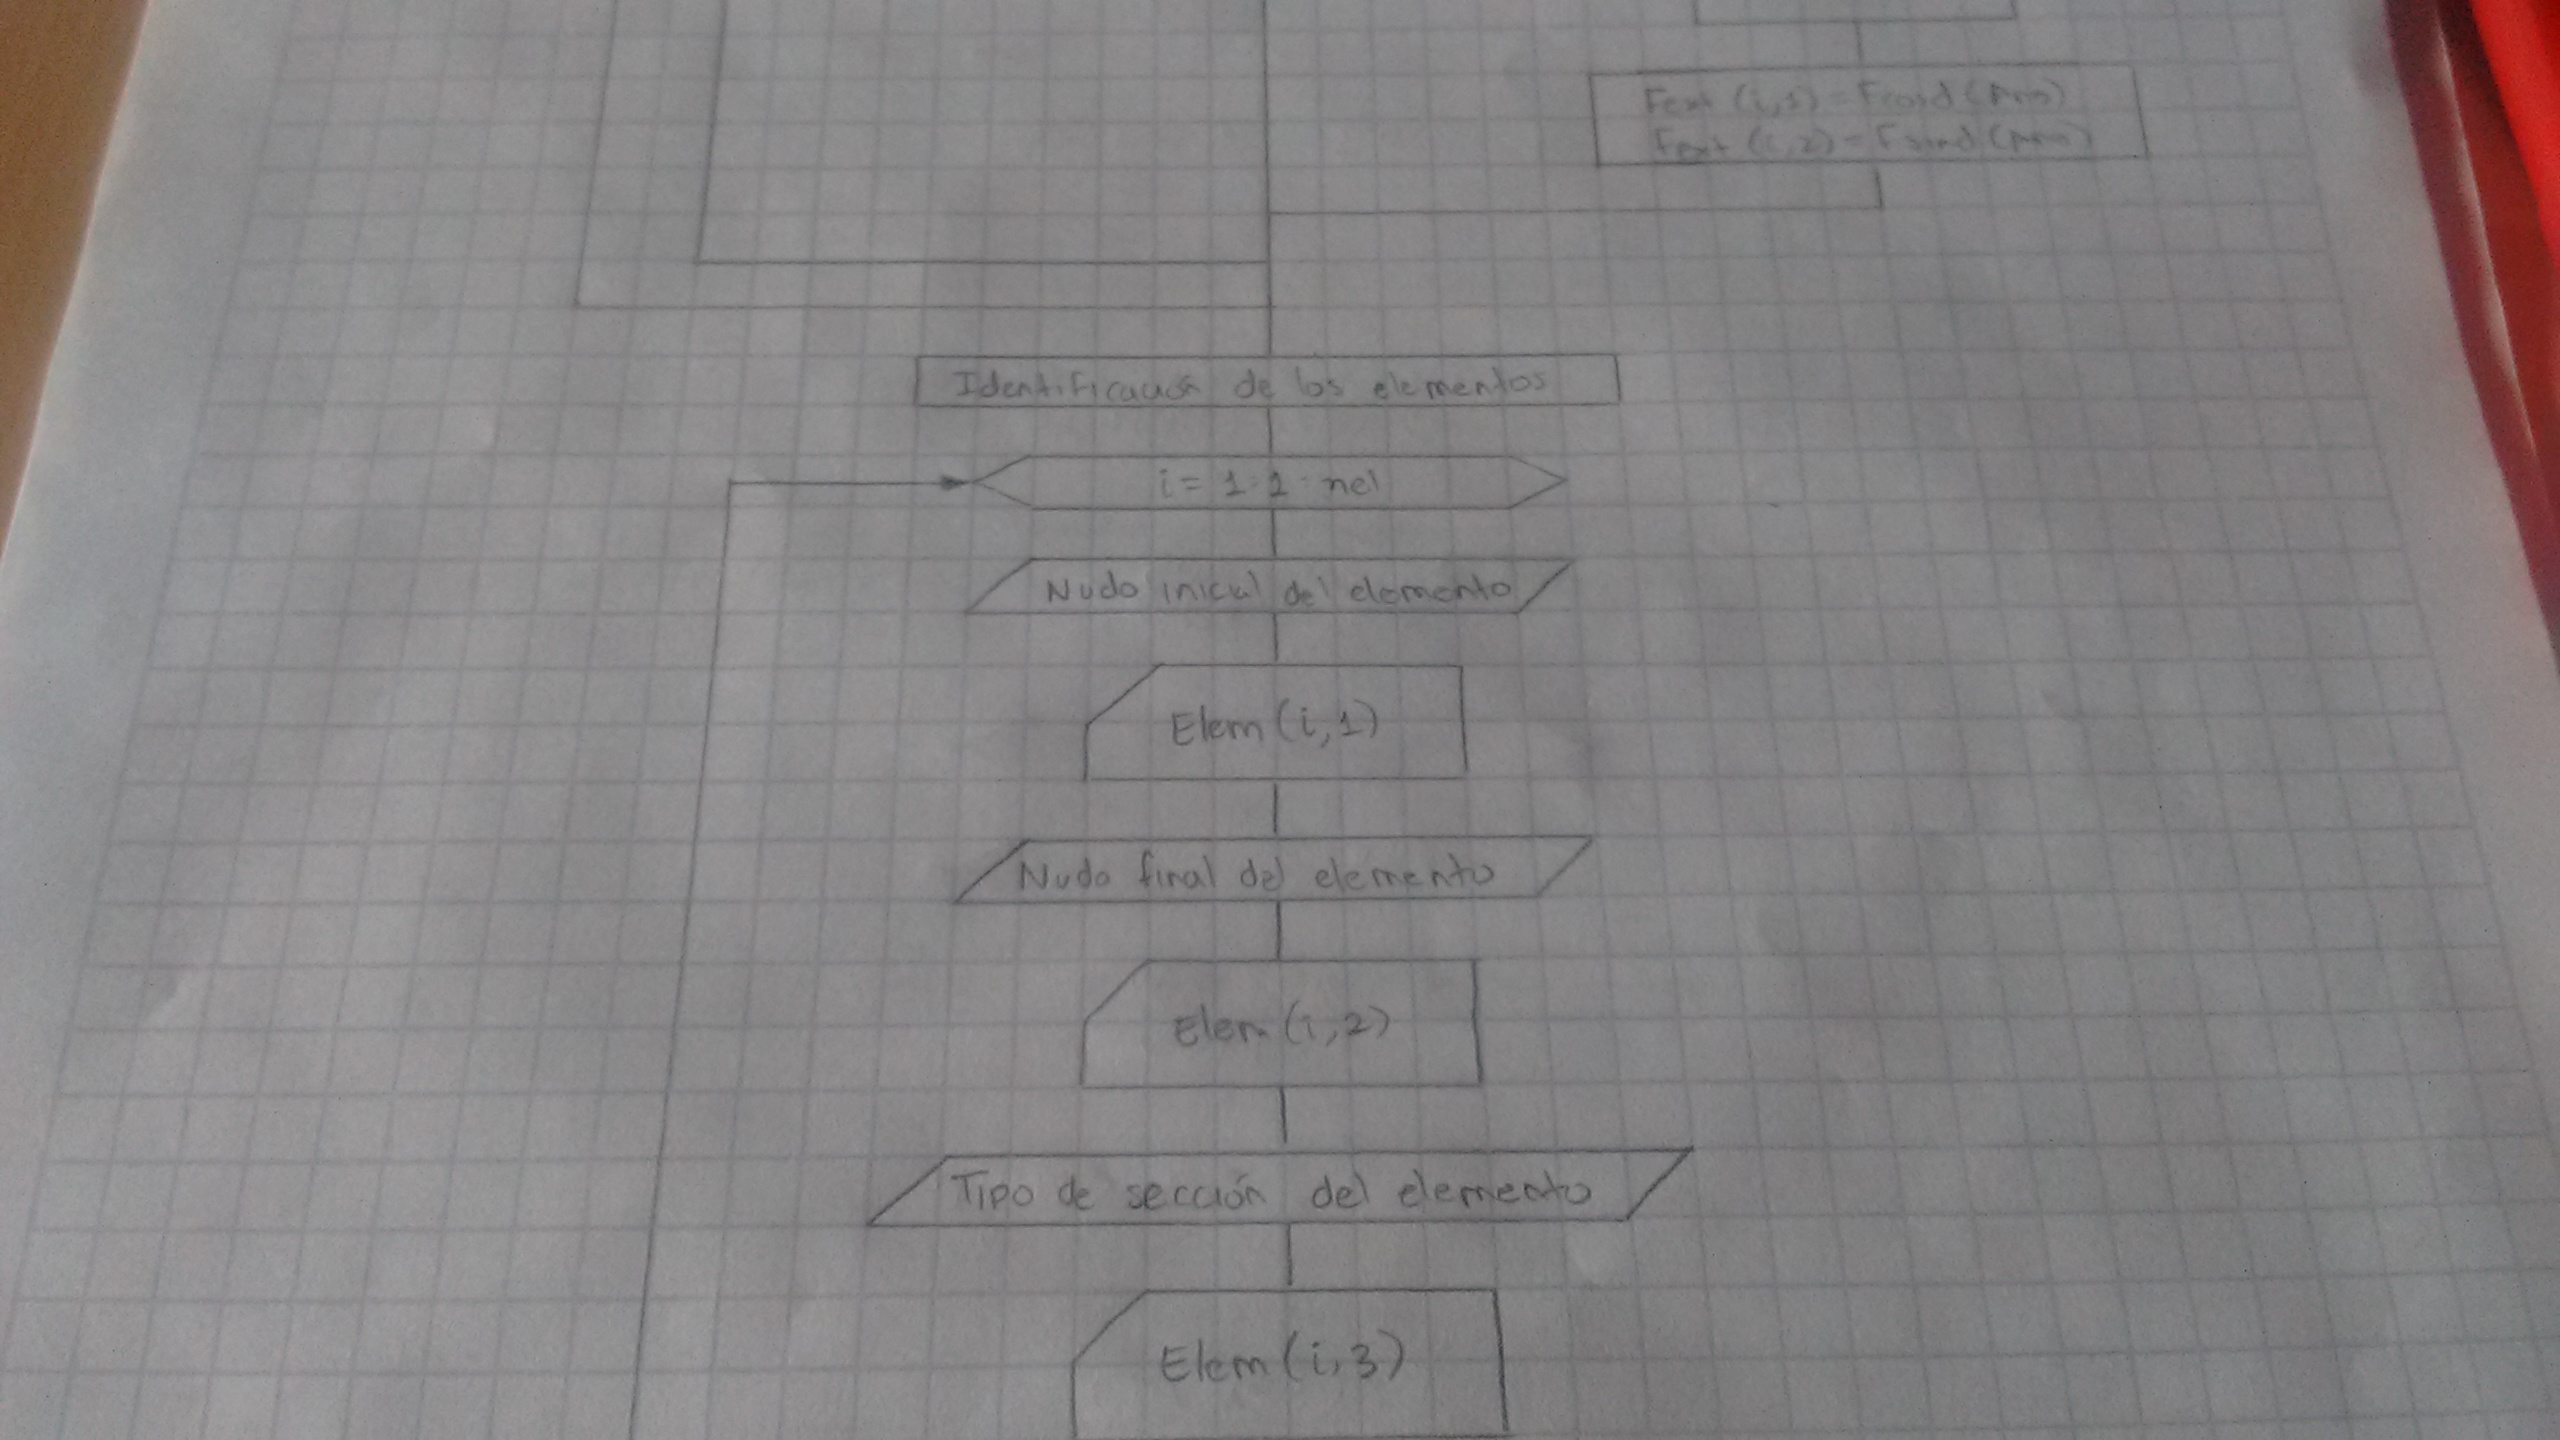 Fext (i,1) = Fcosd (Ang)
Fext (i,2) = Fsind (Ang)
Identificación de los elementos
i = 1:1:nel
Nudo inicial del elemento
Elem (i,1)
Nudo final del elemento
Elem (i,2)
Tipo de sección del elemento
Elem (i,3)